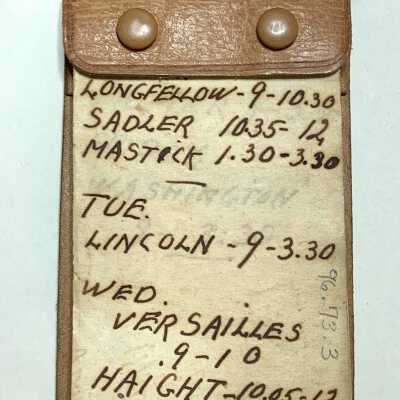 LONGFELLOW - 9 - 10.30
SADLER 10.35 - 12
MASTICK 1.30 - 3.30
WASHINGTON
TUE.
LINCOLN - 9 - 3.30
WED.
VERSAILLES
.9 - 10
HAIGHT - 10.05 - 12
96.73.3